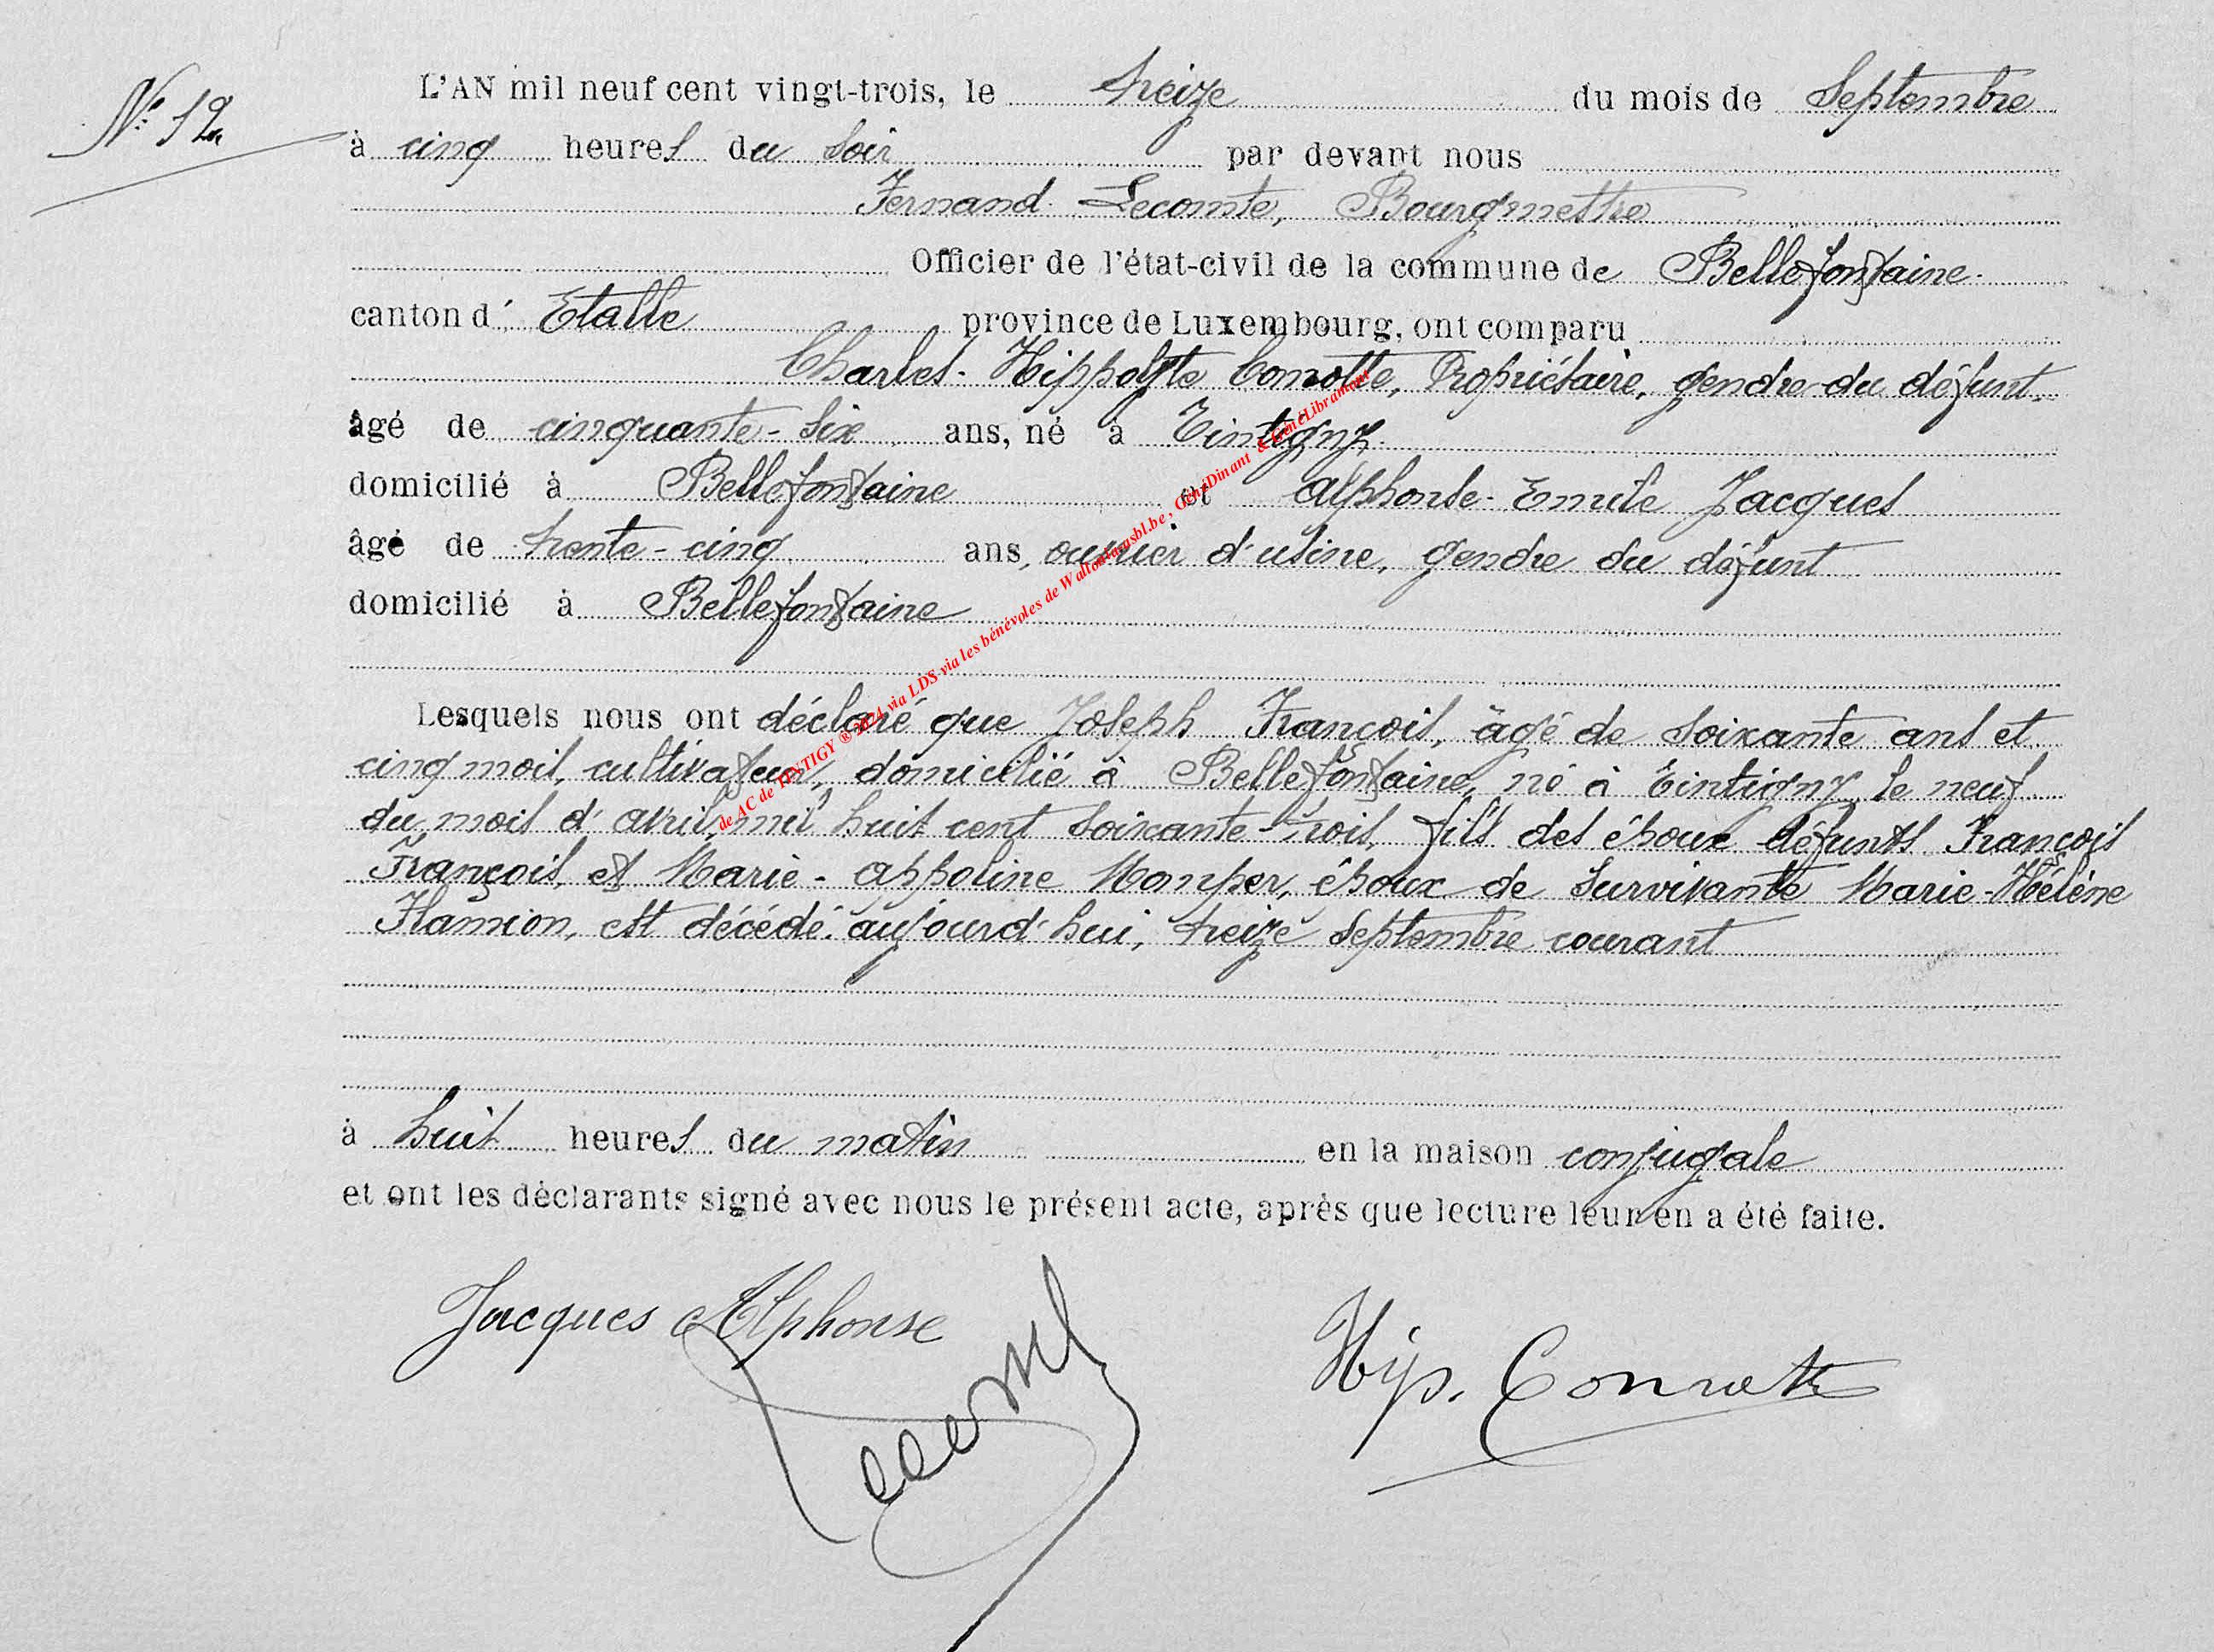 N° 12
L'AN mil neuf cent vingt-trois, le treize du mois de Septembre
à cinq heures du soir par devant nous
Fernand Lecomte, Bourgmettre
Officier de l'état-civil de la commune de Bellefontaine
canton d' Etalle province de Luxembourg, ont comparu
Charles-Hippolyte Conrotte, Propriétaire, gendre du défunt
âgé de cinquante-six ans, né à Tintigny
domicilié à Bellefontaine et Alphonse-Emile Jacques
âgé de trente-cinq ans, ouvrier d'usine, gendre du défunt
domicilié à Bellefontaine
Lesquels nous ont déclaré que Joseph François, âgé de soixante ans et
cinq mois, cultivateur, domicilié à Bellefontaine, né à Tintigny, le neuf
du mois d'avril mil huit cent soixante-trois, fils des époux défunts François
François, et Marie-Appoline Monper, époux de survivante Marie-Hélène
Flamion, est décédé aujourd'hui, treize septembre courant
à huit heures du matin en la maison conjugale
et ont les déclarants signé avec nous le présent acte, après que lecture leur en a été faite.
Jacques Alphonse
Lecomte
Hip. Conrotte
de AC de TINTIGY ® 2024 via LDS via les bénévoles de Wallonia asbl.be , GénéDinant & GénéLibramont